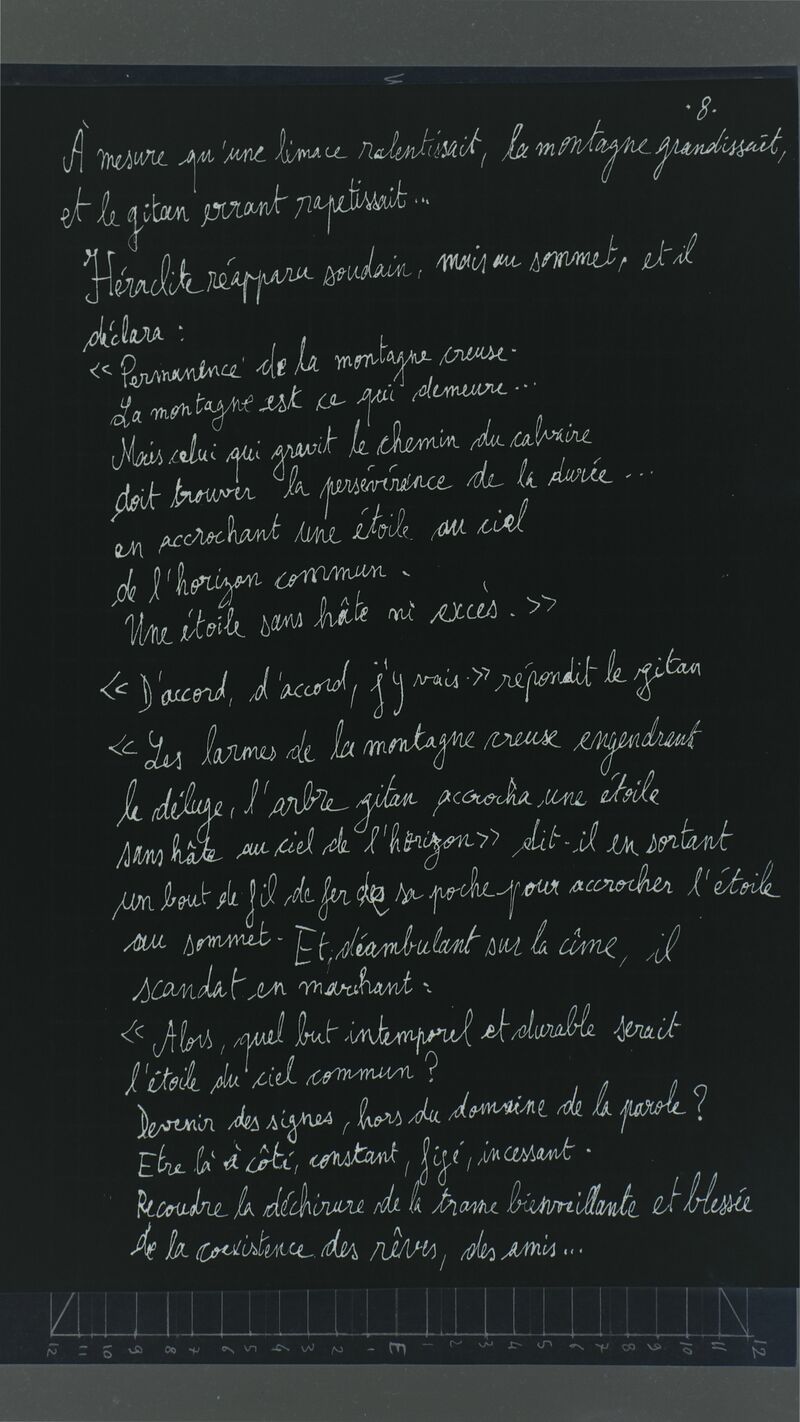 .8.
À mesure qu'une limace ralentissait, la montagne grandissait,
et le gitan errant rapetissait...
Héraclite réapparu soudain, mais au sommet, et il
déclara :
<< Permanence de la montagne creuse.
La montagne est ce qui demeure...
Mais celui qui gravit le chemin du calvaire
doit trouver la persévérance de la durée ...
en accrochant une étoile au ciel
de l'horizon commun.
Une étoile sans hâte ni excès. >>
<< D'accord, d'accord, j'y vais >> répondit le gitan
<< Les larmes de la montagne creuse engendrent
le déluge, l'arbre gitan accrocha une étoile
sans hâte au ciel de l'horizon >> dit-il en sortant
un bout de fil de fer de sa poche pour accrocher l'étoile
au sommet. Et, déambulant sur la cîme, il
scandat en marchant :
<< Alors, quel but intemporel et durable serait
l'étoile du ciel commun ?
Devenir des signes, hors du domaine de la parole ?
Etre là à côté, constant, figé, incessant.
Recoudre la déchirure de la trame bienveillante et blessée
de la coexistence des rêves, des amis...
12 11 10 9 8 7 6 5 4 3 2 1 E 1 2 3 4 5 6 7 8 9 10 11 12